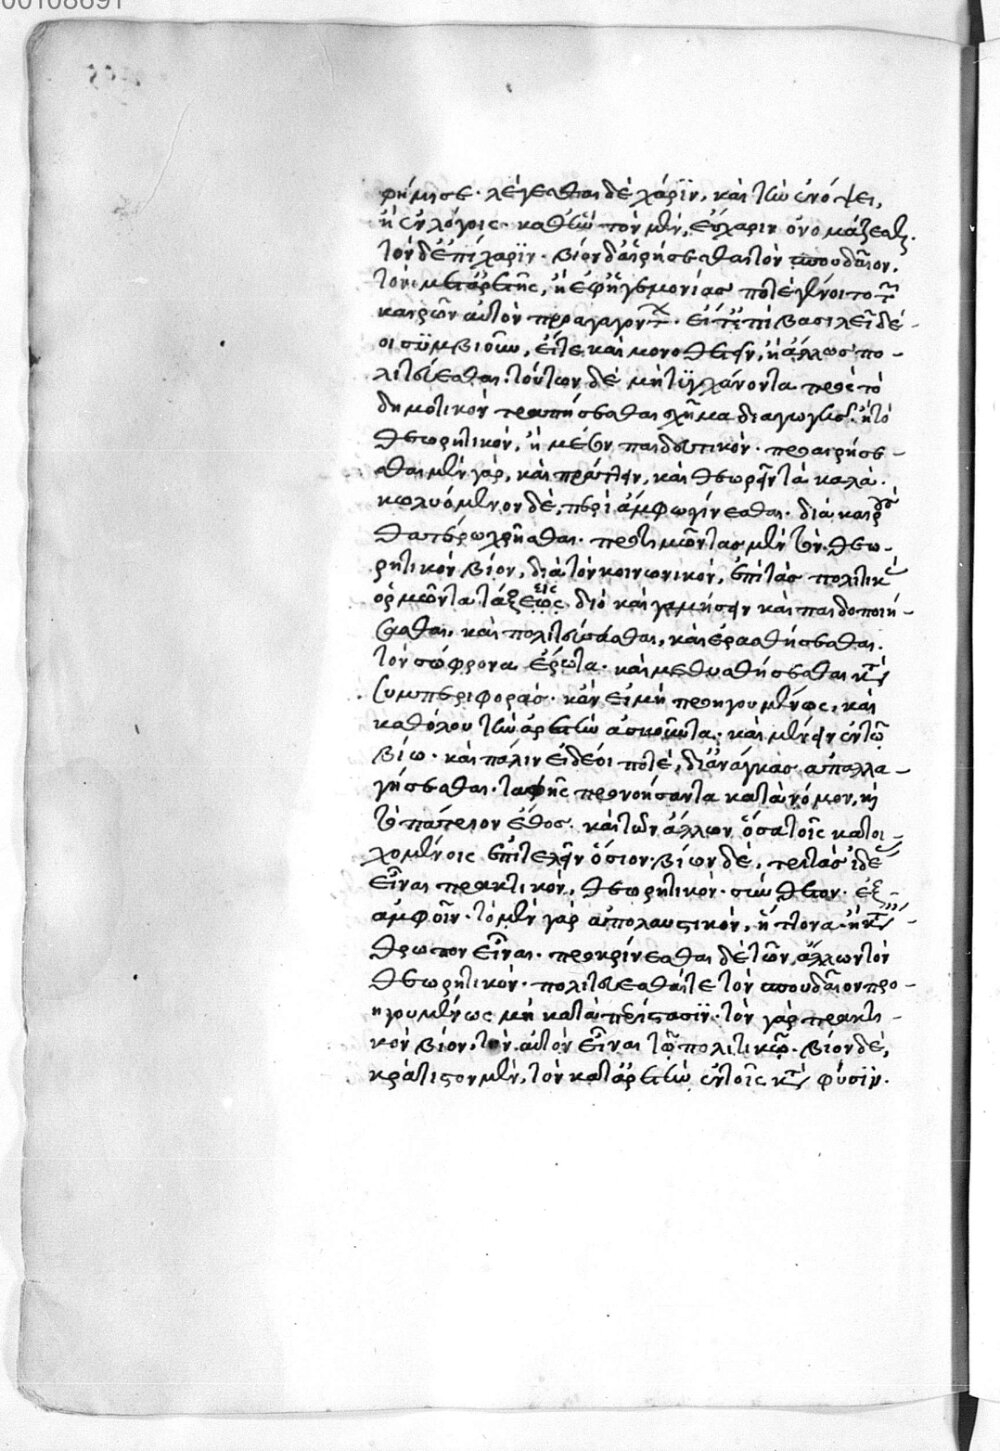 φήμησε· λέγεσθαι δὲ χάριν, καὶ τὴν ἐν ὄψει,
ἢ ἐν λόγοις· καθ' ἣν τὸν μὲν, εὔχαριν ὀνομάζεσθαι·
τὸν δ' ἐπίχαριν· βίον δ' αἱρήσεσθαι τὸν σπουδαῖον,
τὸν μετ' ἀρετῆς, ἢ ἐφ' ἡγεμονίας ποτὲ γένοιτο τῶν
καιρῶν αὐτὸν προαγαγόντων· εἴτ' ἐπὶ βασιλεῖ δέ-
οι συμβιοῦν, εἴτε καὶ νομοθετεῖν, ἢ ἄλλως πο-
λιτεύεσθαι· τούτων δὲ μὴ τυγχάνοντα πρὸς τὸ
δημοτικὸν τραπήσεσθαι σχῆμα διαγωγῆς· ἢ τὸ
θεωρητικὸν, ἢ μέσον παιδευτικόν· προαιρήσε-
σθαι μὲν γὰρ, καὶ πράττειν, καὶ θεωρεῖν τὰ καλά·
κωλυόμενον δὲ, περὶ ἄμφω γίνεσθαι· διὰ καιροὺς
θατέρω χρῆσθαι· προτιμῶντας μὲν τὸν θεω-
ρητικὸν βίον, διὰ τὸν κοινωνικὸν, ἐπὶ τὰς πολιτικὰς
ὁρμῶντα τάξεως· διὸ καὶ γαμήσειν καὶ παιδοποιή-
σεσθαι, καὶ πολιτεύσασθαι, καὶ ἐρασθήσεσθαι
τὸν σώφρονα ἔρωτα· καὶ μεθυσθήσεσθαι κατὰ
συμπεριφοράς· κἂν εἰ μὴ προηγουμένως, καὶ
καθόλου τὴν ἀρετὴν ἀσκοῦντα· καὶ μένειν ἐν τῷ
βίῳ· καὶ πάλιν εἰ δέοι ποτὲ, δι' ἀνάγκας ἀπαλλα-
γήσεσθαι· ταφῆς προνοήσαντα κατὰ νόμον, καὶ
τὸ πάτριον ἔθος· καὶ τῶν ἄλλων ὅσα τοῖς κατοι-
χομένοις ἐπιτελεῖν ὅσιον· βίων δὲ, τριττὰς ἰδέας
εἶναι πρακτικὸν, θεωρητικὸν· σύνθετον· ἐξ
ἀμφοῖν· τὸ μὲν γὰρ ἀπολαυστικὸν, ἥττονα ἢ κατ' ἄν-
θρωπον εἶναι· προκρίνεσθαι δὲ τῶν ἄλλων τὸν
θεωρητικόν· πολιτεύεσθαί τε τὸν σπουδαῖον προ-
ηγουμένως μὴ κατὰ περίστασιν· τὸν γὰρ πρακτι-
κὸν βίον, τὸν αὐτὸν εἶναι τῷ πολιτικῷ· βίον δὲ,
κράτιστον μὲν, τὸν κατ' ἀρετὴν ἐν τοῖς κατὰ φύσιν·